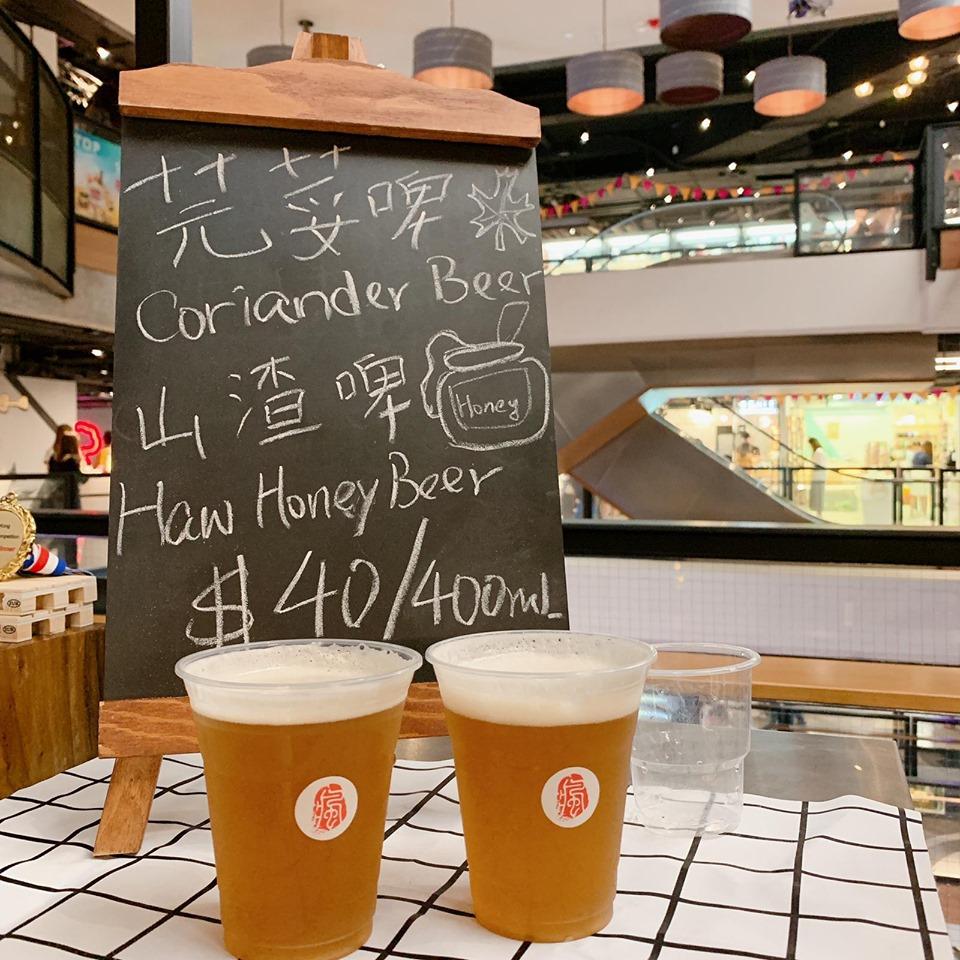 芫荽啤
Coriander Beer
山渣啤
Honey
Haw Honey Beer
$40/400mL
TOP
瘋
瘋